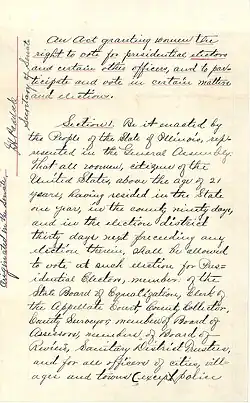 An Act granting women the
right to vote for presidential electors
and certain other officers, and to par-
ticipate and vote in certain matters
and elections.
Section 1. Be it enacted by
the People of the State of Illinois, rep-
resented in the General Assembly:
That all women, citizens of the
United States, above the age of 21
years, having resided in the State
one year, in the county ninety days,
and in the election district
thirty days next preceding any
election therein, shall be allowed
to vote at such election for Pres-
idential Electors, member of the
State Board of Equalization, Clerk of
the Appellate Court, County Collector,
County Surveyor, members of Board of
Assessors, members of Board of
Review, Sanitary District Trustees,
and for all officers of cities, vill-
ages and towns (except police
Originated in the Senate.
Secretary of Senate